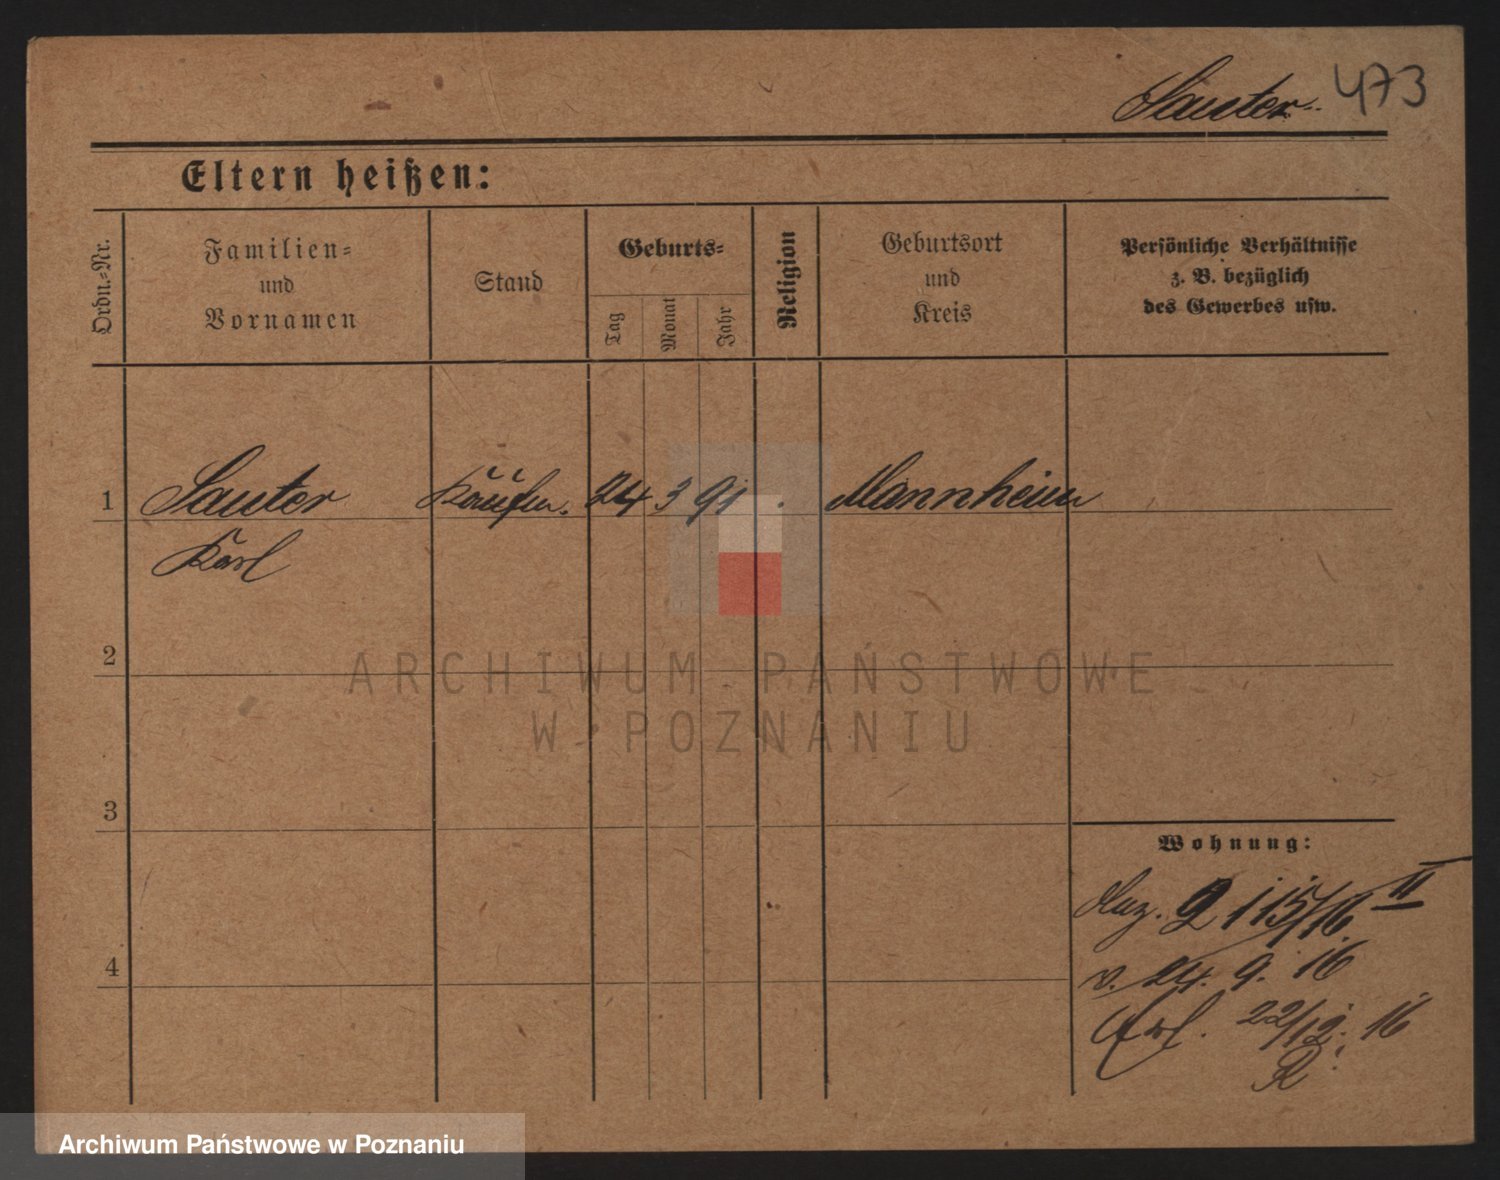 Sauter 473
Eltern heißen:
Ordn.-Nr.
Familien-
und
Vornamen
Stand
Geburts-
Tag
Monat
Jahr
Religion
Geburtsort
und
Kreis
Persönliche Verhältnisse
z. B. bezüglich
des Gewerbes usw.
1 Sauter 24 3 91 Mannheim
Karl
2
3
4
Wohnung:
115/16 II
v. 24. 9. 16
22/12. 16
ARCHIWUM PAŃSTWOWE
W POZNANIU
Archiwum Państwowe w Poznaniu